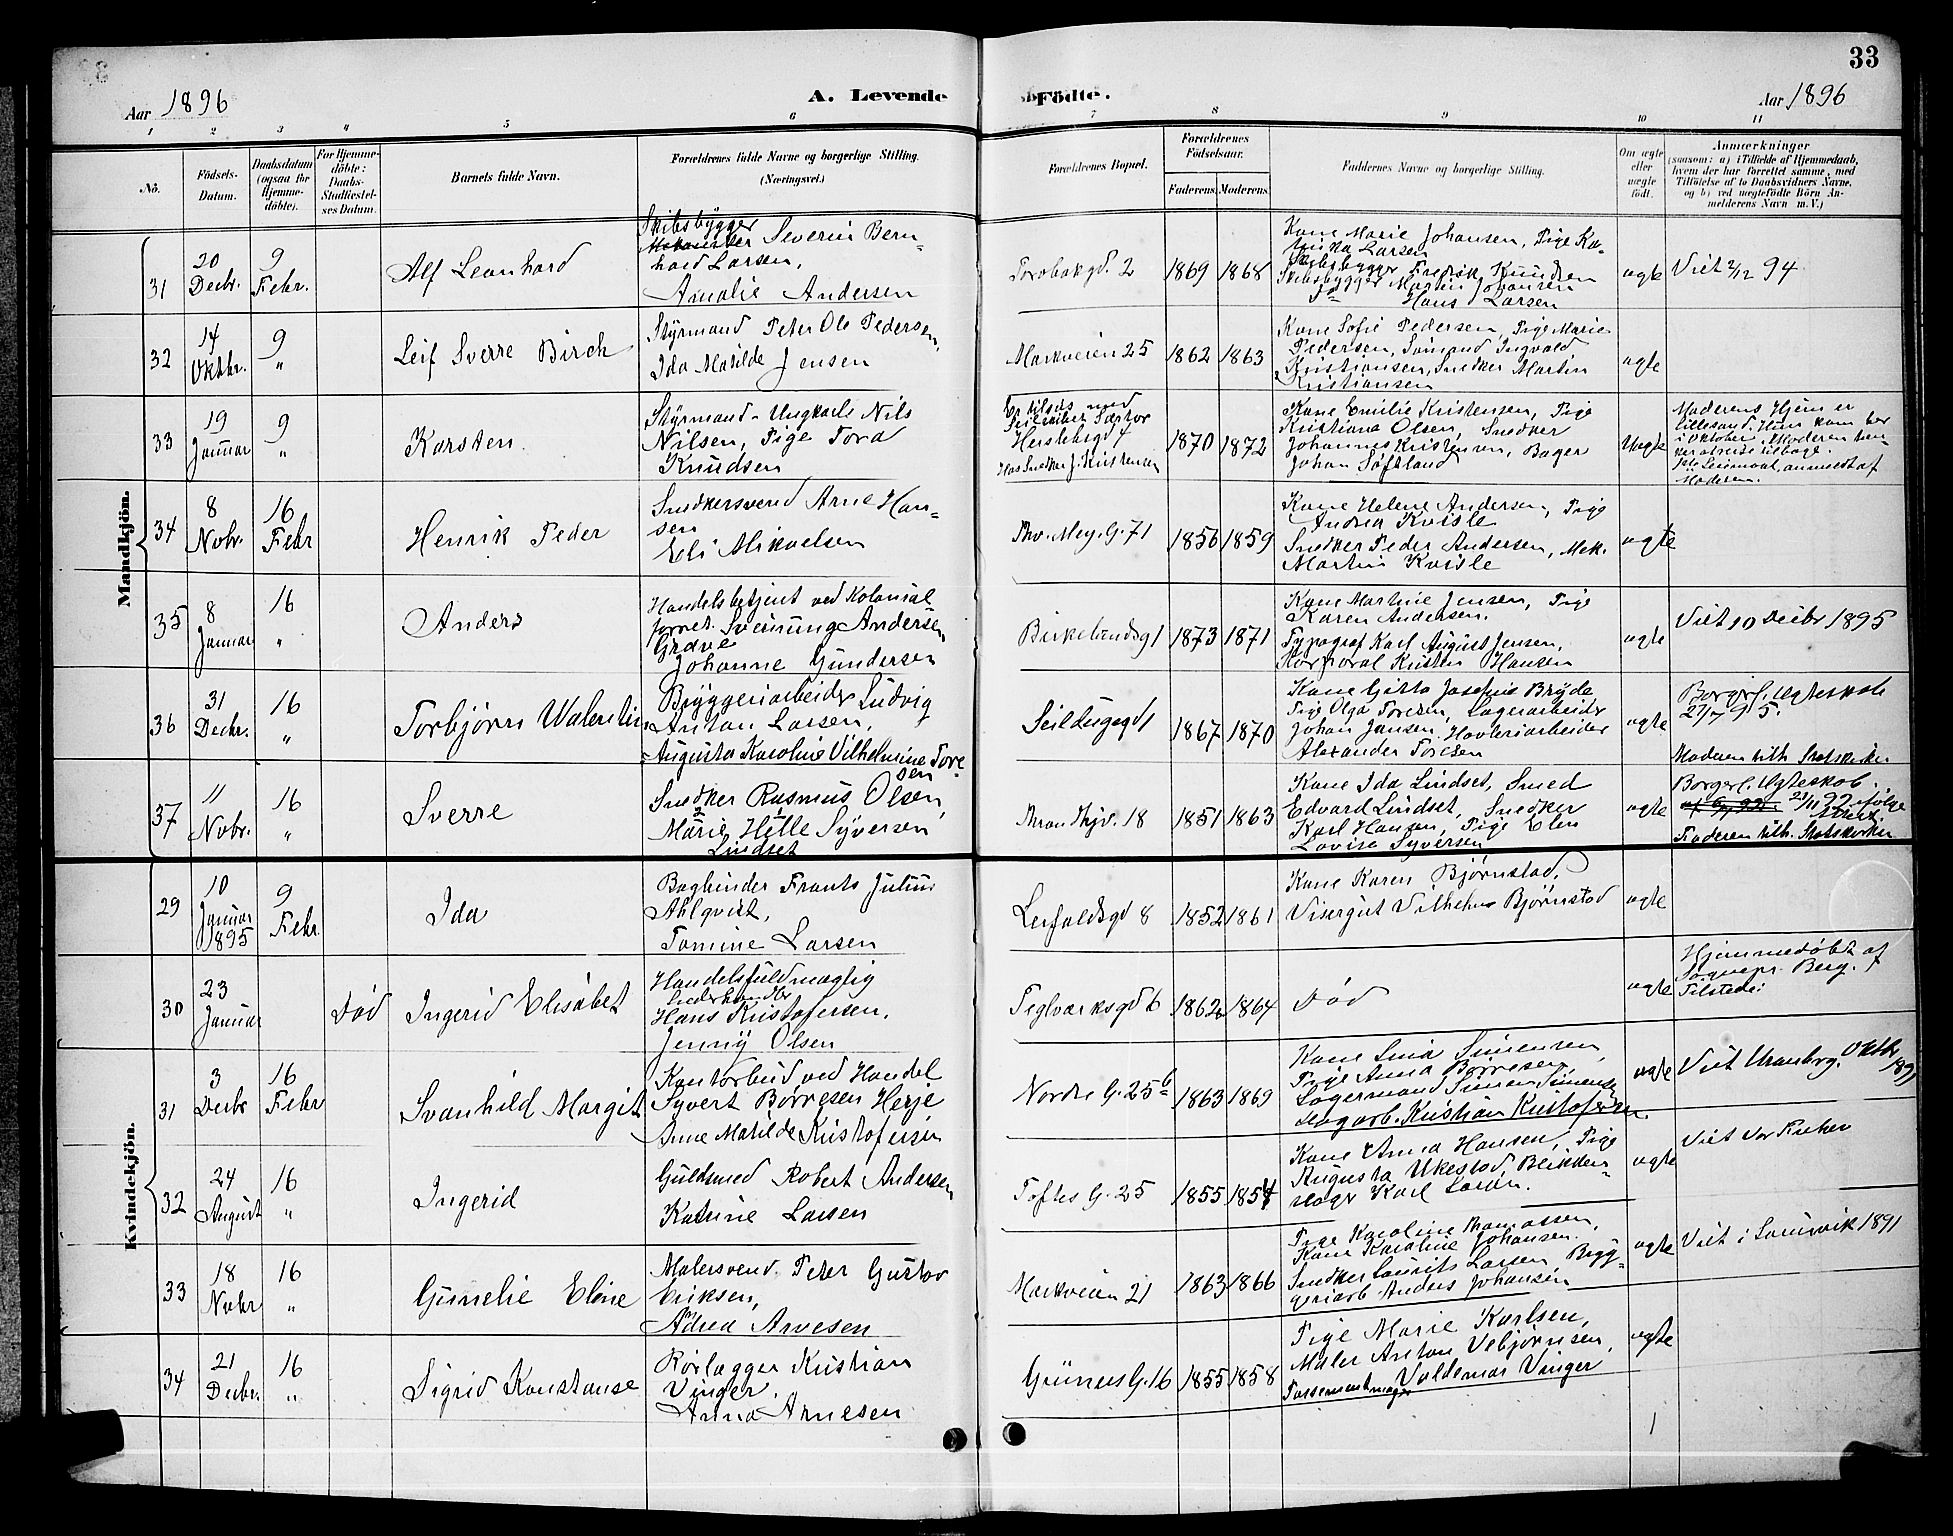 33
Aar 1896
A. Levende Födte.
Aar 1896
1 2 3 4 5 6 7 8 9 10 11
No.
Födsels-Datum.
Daabsdatum (ogsaa for Hjemme-döbte).
For Hjemme-döbte: Daabs-Stadfæstel-ses Datum.
Barnets fulde Navn.
Forældrenes fulde Navne og borgerlige Stilling. (Næringsvei.)
Forældrenes Bopæl.
Forældrenes Födselsaar.
Faderens.
Moderens.
Faddernes Navne og borgerlige Stilling.
Om ægte eller uægte født.
Anmærkninger
(saasom: a) i Tilfælde af Hjemmedaab,
hvem der har forrettet samme, med
Tilföielse af to Daabsvidners Navne,
og b) ved uægtefödte Börn An-
melderens Navn m. V.)
Mandkjön.
31
20 Decbr.
9 Febr.
Alf Leonhard
Skibsbygger
Severin Bern-
hard Larsen,
Amalie Andersen
2
1869
1868
Kone Marie Johansen, Pige Ka-
Larsen
Skibsbygger Fredrik Knudsen
Skibsbygger Martin Johansen
Hans Larsen
ægte
Viet 2/12 94
32
14 Oktbr.
9 "
Leif Sverre Birch
Styrmand Peter Ole Pedersen,
Ida Matilde Jensen
Markveien 25
1862
1863
Kone Sofie Pedersen, Pige Marie
Pedersen, Sömand Ingvald
Kristiansen, Snedker Martin
Kristiansen
ægte
33
19 Januar
9 "
Karsten
Styrmand - Ungkarl Nils
Nilsen, Pige Tora
Knudsen
Herslebsgd 4
Hos Snedker J. Kristensen
1870
1872
Kone Emilie Kristensen, Pige
Kristiana Olsen, Snedker
Johannes Kristensen, Bager
Johan Söftland
Uægte
Moderens Hjem er
Lillesand. Hun kom her
i Oktober. Moderen
reise tilbage.
anmeldt af
Moderen.
34
8 Novbr.
16 Febr
Henrik Peder
Snedkersvend Arne Han-
sen
Eli Mikaelsen
Thv. Mey. G. 71
1856
1859
Kone Helene Andersen, Pige
Andrea Kvisle
Snedker Peder Andersen, Mek.
Martin Kvisle
ægte
35
8 Januar
16 "
Anders
Handelsbetjent ved Kolonial-
forret. Sveinung Andersen
Grave
Johanne Gundersen
Birkelundsg 1
1873
1871
Kone Martine Jensen, Pige
Karen Andersen.
Typograf Karl August Jensen,
Korporal Kristen Hansen
ægte
Viet 10 Decbr 1895
36
31 Decbr.
16 "
Torbjörn Walentin
Bryggeriarbeider Ludvig
Anton Larsen,
Augusta Karoline Vilhelmine Tore-
sen
Seildugsgd 1
1867
1870
Kone Gitta Josefine Bryde
Pige Olga Toresen, Lagerarbeider
Johan Jansen, Hövleriarbeider
Alexander Toresen
ægte
Borgerl. Ægteskab
27/7 95.
Moderen tilh. Statskirken
37
11 Novbr.
16 "
Sverre
Snedker Rasmus Olsen,
Marie Helle Syversen
Lindset
Throndhjv. 18
1851
1863
Kone Ida Lindset, Smed
Edvard Lindset, Snedker
Karl Hansen, Pige Elen
Lovise Syversen
ægte
Borgerl. Ægteskab
23/11 92 ifölge
Attest
Faderen tilh. Statskirken
Kvindekjön.
29
10 Januar 1895
9 Febr
Ida
Bogbinder Frants Julius
Ahlqvist,
Tomine Larsen
Leirfaldsgd 8
1852
1861
Kone Karen Björnstad,
Visergut Vilhelm Björnstad
ægte
30
23 Januar
Död
Ingerid Elisabet
Handelsfuldmægtig
Læderhandler
Hans Kristofersen,
Jenny Olsen
Teglværksgd 6
1862
1864
Död
ægte
Hjemmedöbt af
Sognepr. Berg.
Tilstede:
31
3 Decbr
16 Febr
Svanhild Margit
Kontorbud ved Handel
Syvert Börresen Herje
Anne Matilde Kristofersen
Nordre G. 25 b
1863
1869
Kone Lina Simensen,
Pige Anna Börresen
Lagermand Simen Simensen
Kristian Kristofersen
ægte
Viet Uranborg. Oktbr 189
32
24 August
16 "
Ingerid
Guldsmed Robert Andersen
Katrine Larsen
Toftes G. 25
1855
1854
Kone Anna Hansen, Pige
Augusta Ukestad, Blikken-
slager Karl Larsen.
ægte
Viet Vor Frelser
33
18 Novbr
16 "
Gunelie Eline
Malersvend. Peter Gustav
Eriksen,
Andrea Arvesen
Markveien 21
1863
1866
Pige Karoline Thomassen,
Kone Karoline Johansen.
Snedker Laurits Larsen, Brygg-
geriarb. Anders Johansen
ægte
Viet i Laurvik 1891
34
21 Decbr.
16 "
Sigrid Konstanse
Rörlægger Kristian
Vinger.
Anna Arnesen
Grüners G. 16
1855
1858
Pige Marie Karlsen,
Maler Anton Vebjörnsen,
Possementmager Valdemar Vinger
ægte